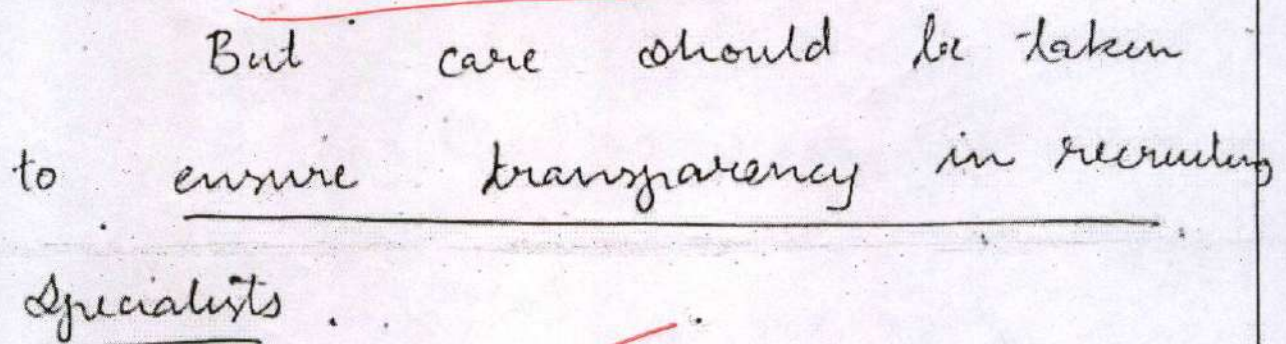 But care should be taken
to ensure transparency in recruiting
Specialists.